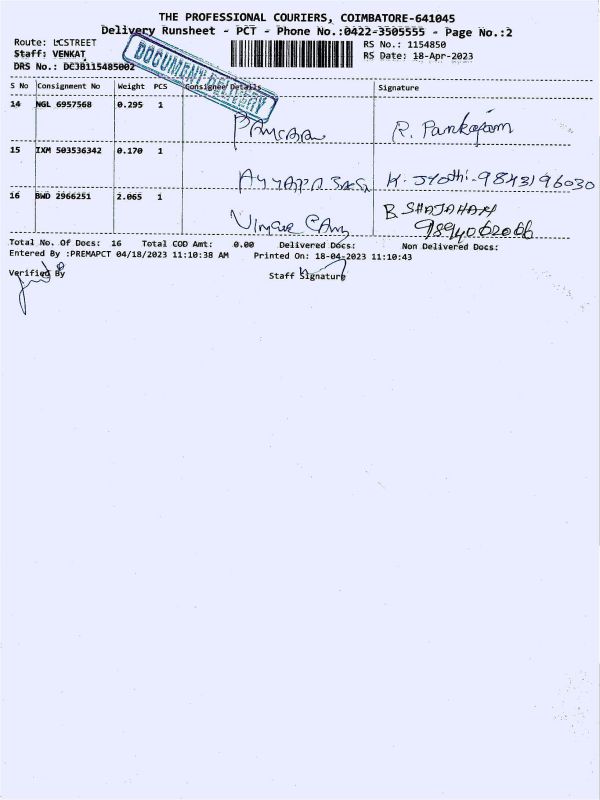 THE PROFESSIONAL COURIERS, COIMBATORE-641045
Delivery Runsheet - PCT - Phone No.:0422-3505555 - Page No.:2
Route: LCSTREET
RS No.: 1154850
Staff: VENKAT
RS Date: 18-Apr-2023
DRS No.: DCJB115485002
DOCUMENT DELIVERY
S No Consignment No Weight PCS Consignee Details Signature
14 NGL 6957568 0.295 1 R. Pankajam
15 IXM 503536342 0.170 1 K. Jyothi - 9843196030
16 BWD 2966251 2.065 1 B SHAJAHAN
9894062066
Total No. Of Docs: 16 Total COD Amt: 0.00 Delivered Docs: Non Delivered Docs:
Entered By :PREMAPCT 04/18/2023 11:10:38 AM Printed On: 18-04-2023 11:10:43
Verified By Staff Signature